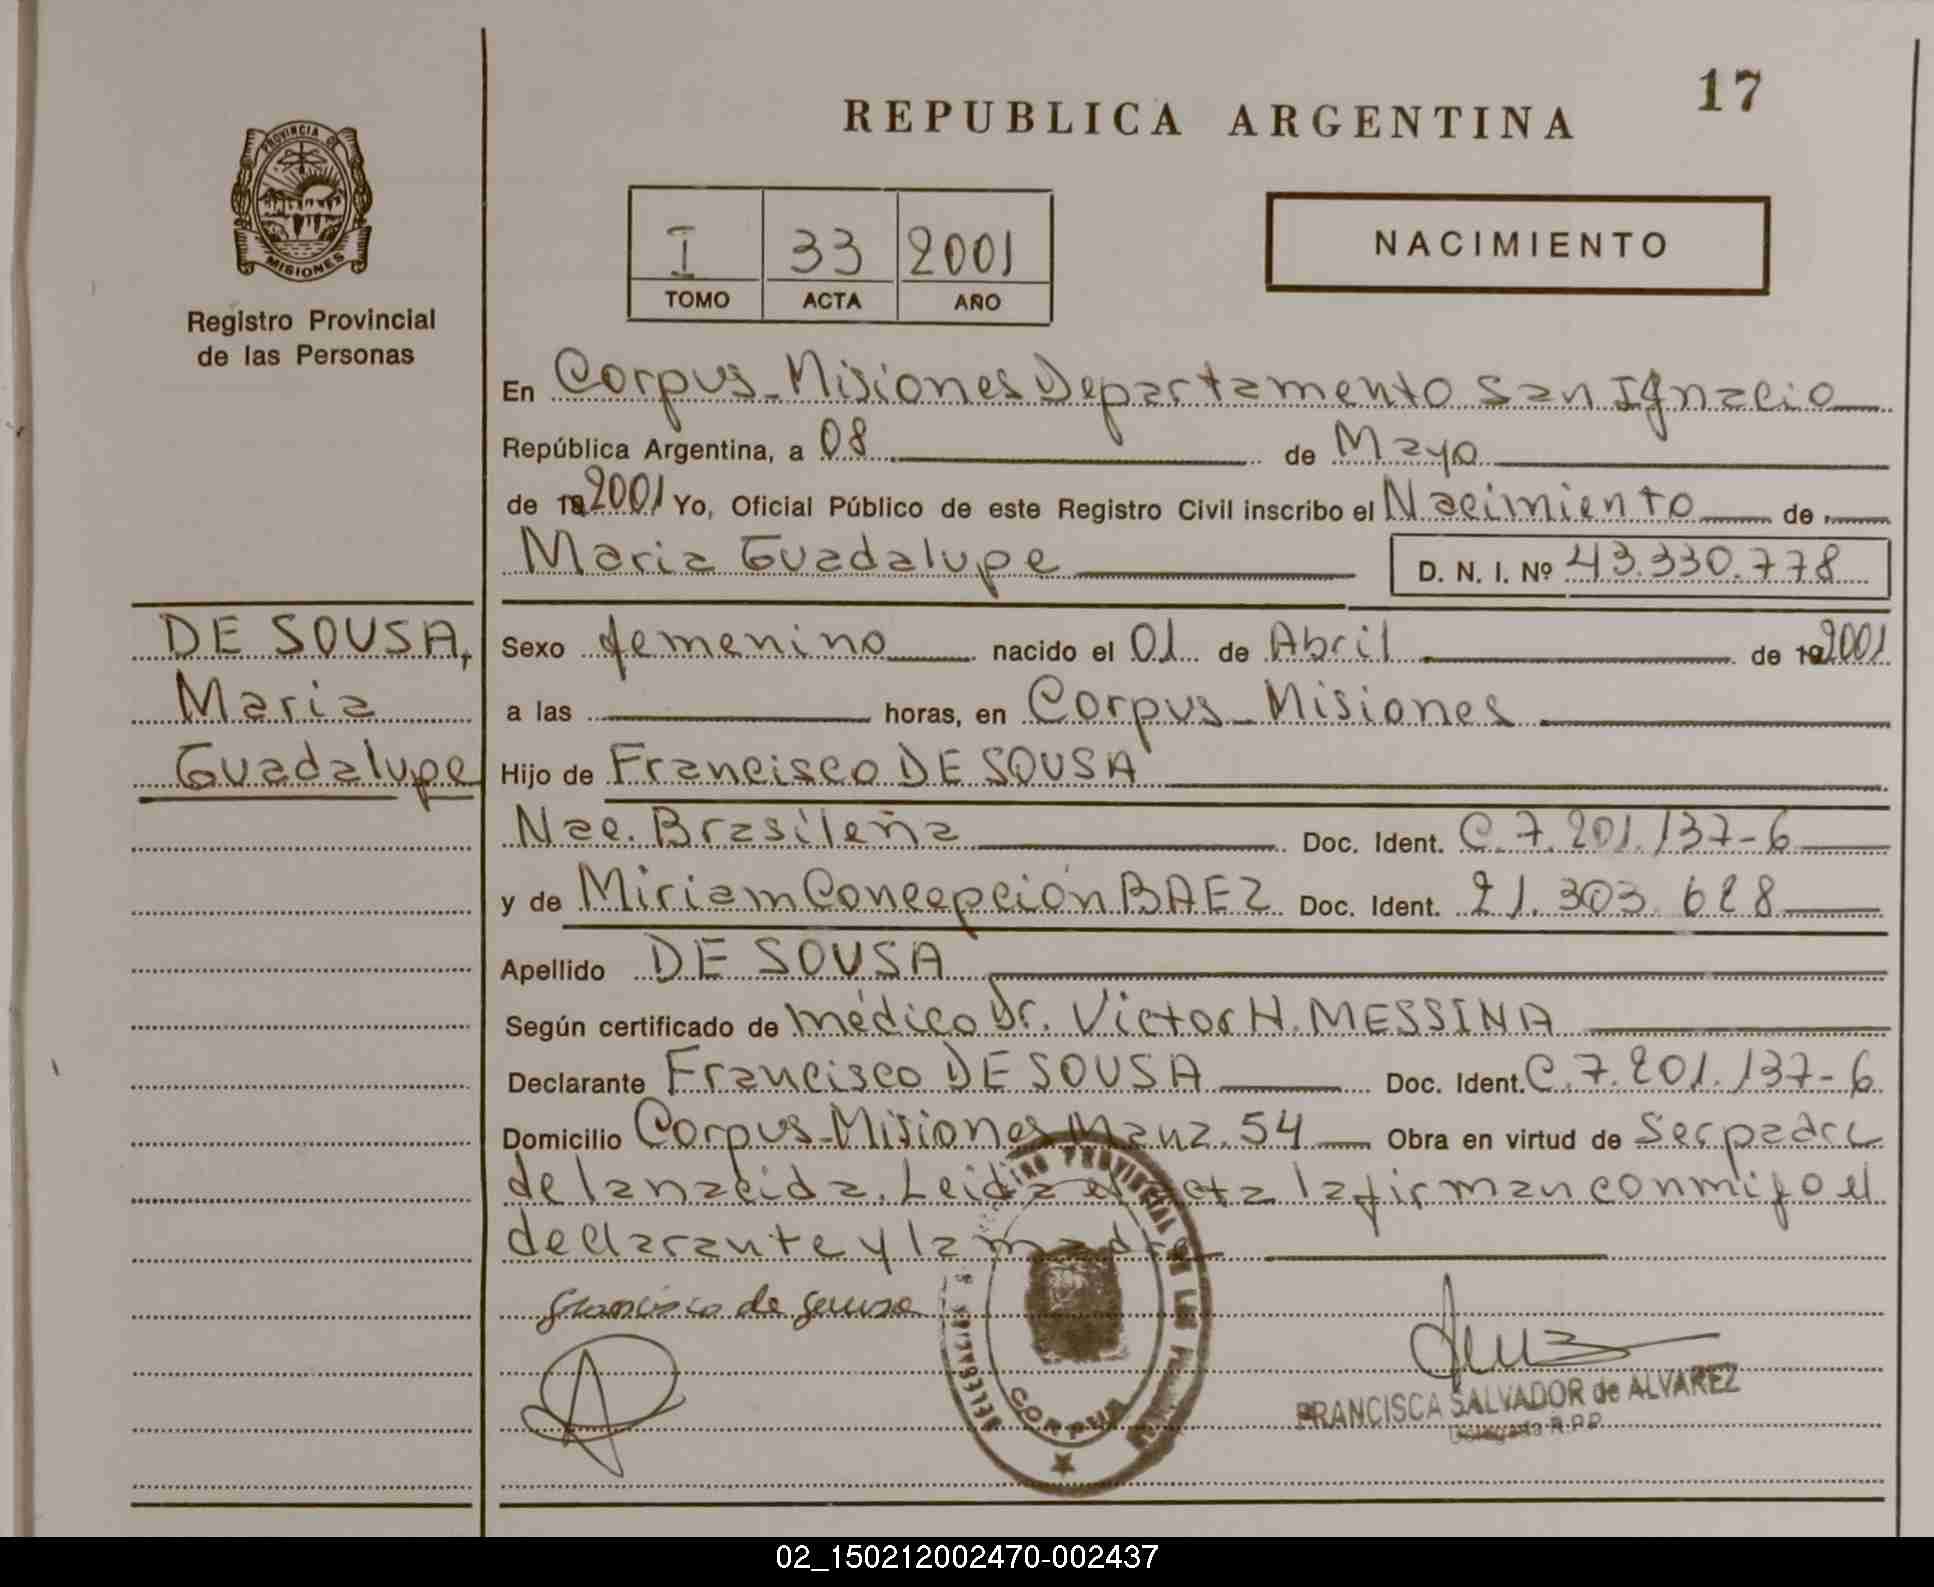 17
REPUBLICA ARGENTINA
PROVINCIA DE
MISIONES
Registro Provincial
de las Personas
I 33 2001
TOMO ACTA AÑO
NACIMIENTO
En Corpus-Misiones Departamento San Ignacio
República Argentina, a 08 de Mayo
de 19 2001 Yo, Oficial Público de este Registro Civil inscribo el Nacimiento de
Maria Guadalupe D. N. I. Nº 43.330.778
DE SOUSA,
Maria
Guadalupe
Sexo femenino nacido el 01 de Abril de 19 2001
a las horas, en Corpus-Misiones
Hijo de Francisco DE SOUSA
Nac. Brasileña Doc. Ident. C.7.201.137-6
y de Miriam Concepción BAEZ Doc. Ident. 21.303.628
Apellido DE SOUSA
Según certificado de médico Dr. Victor H. MESSINA
Declarante Francisco DE SOUSA Doc. Ident. C.7.201.137-6
Domicilio Corpus-Misiones Manz. 54 Obra en virtud de Ser padre
de la nacida. Leida el acta la firman conmigo el
declarante y la madre
francisco de souza
CORPUS
FRANCISCA SALVADOR de ALVAREZ
Delegada R.P.P.
02_150212002470-002437